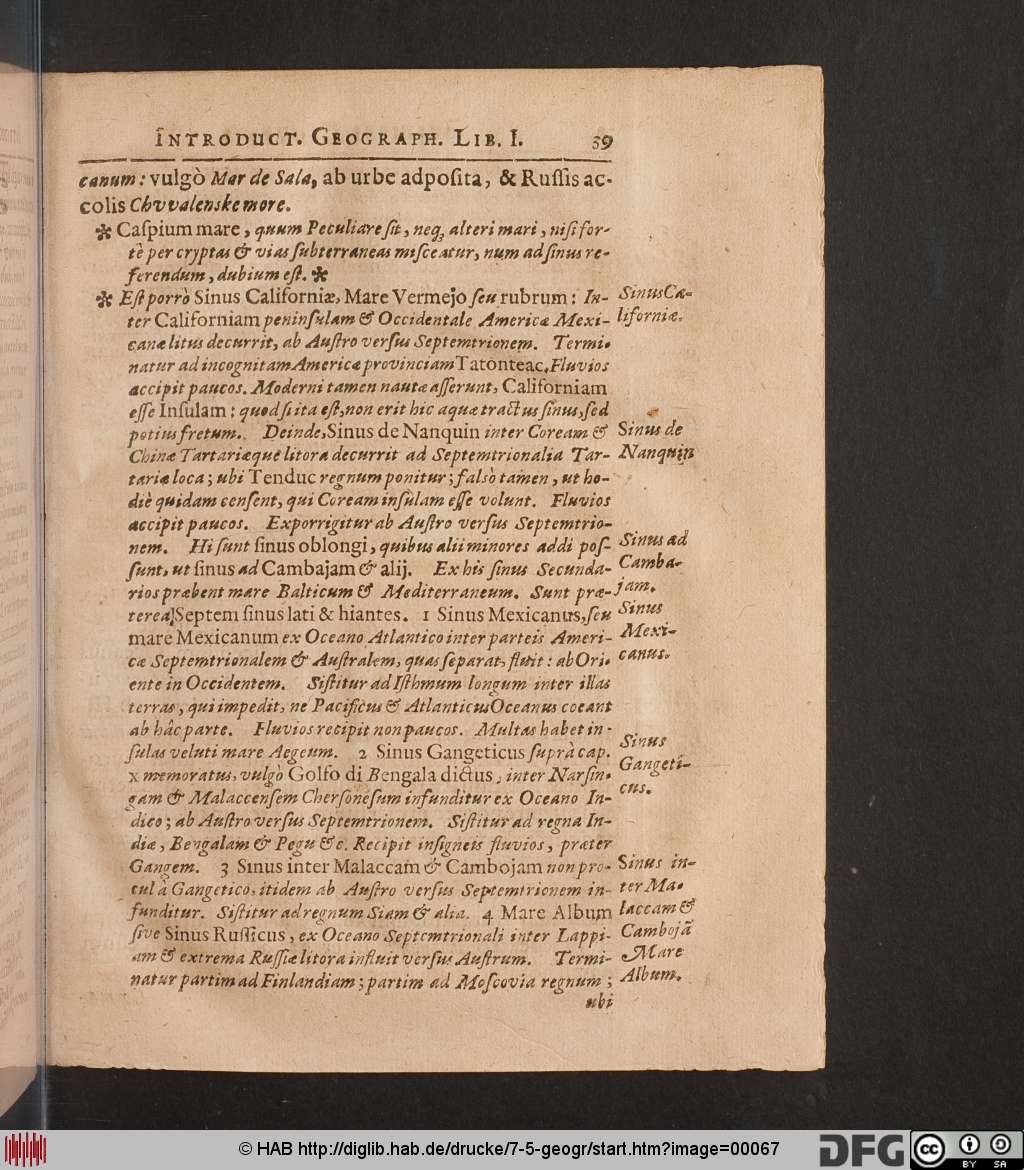 INTRODUCT. GEOGRAPH. LIB. I. 59
canum: vulgò Mar de Sala, ab urbe adposita, & Russis ac-
colis Chvvalenske more.
✻ Caspium mare, quum Peculiare sit, neq; alteri mari, nisi for-
tè per cryptas & vias subterraneas misceatur, num ad sinus re-
ferendum, dubium est. ✻
✻ Est porrò Sinus Californiæ, Mare Vermejo seu rubrum: In-
ter Californiam peninsulam & Occidentale Americæ Mexi-
canæ litus decurrit, ab Austro versus Septemtrionem. Termi-
natur ad incognitam Americæ provinciam Tatonteac. Fluvios
accipit paucos. Moderni tamen nautæ asserunt, Californiam
esse Insulam: quod si ita est, non erit hic aquæ tractus sinus, sed
potius fretum. Deinde, Sinus de Nanquin inter Coream &
Chinæ Tartariæque litora decurrit ad Septemtrionalia Tar-
tariæ loca; ubi Tenduc regnum ponitur; falsò tamen, ut ho-
diè quidam censent, qui Coream insulam esse volunt. Fluvios
accipit paucos. Exporrigitur ab Austro versus Septemtrio-
nem. Hi sunt sinus oblongi, quibus alii minores addi pos-
sunt, ut sinus ad Cambajam & alij. Ex his sinus Secunda-
rios præbent mare Balticum & Mediterraneum. Sunt præ-
terea Septem sinus lati & hiantes. 1 Sinus Mexicanus, seu
mare Mexicanum ex Oceano Atlantico inter parteis Ameri-
cæ Septemtrionalem & Australem, quas separat, fluit: ab Ori-
ente in Occidentem. Sistitur ad Isthmum longum inter illas
terras, qui impedit, ne Pacificus & Atlanticus Oceanus coeant
ab hâc parte. Fluvios recipit non paucos. Multas habet in-
sulas veluti mare Aegeum. 2 Sinus Gangeticus suprà cap.
x memoratus, vulgò Golfo di Bengala dictus, inter Narsin-
gam & Malaccensem Chersonesum infunditur ex Oceano In-
dico; ab Austro versus Septemtrionem. Sistitur ad regna In-
diæ, Bengalam & Pegu &c. Recipit insigneis fluvios, præter
Gangem. 3 Sinus inter Malaccam & Cambojam non pro-
cul à Gangetico, itidem ab Austro versus Septemtrionem in-
funditur. Sistitur ad regnum Siam & alia. 4 Mare Album
sive Sinus Russicus, ex Oceano Septemtrionali inter Lappi-
am & extrema Russiæ litora influit versus Austrum. Termi-
natur partim ad Finlandiam; partim ad Moscovia regnum;
ubi
Sinus Ca-
liforniæ.
Sinus de
Nanquin
Sinus ad
Camba-
jam.
Sinus
Mexi-
canus.
Sinus
Gangeti-
cus.
Sinus in-
ter Ma-
laccam &
Cambojã
Mare
Album.
© HAB http://diglib.hab.de/drucke/7-5-geogr/start.htm?image=00067
DFG
cc
BY SA